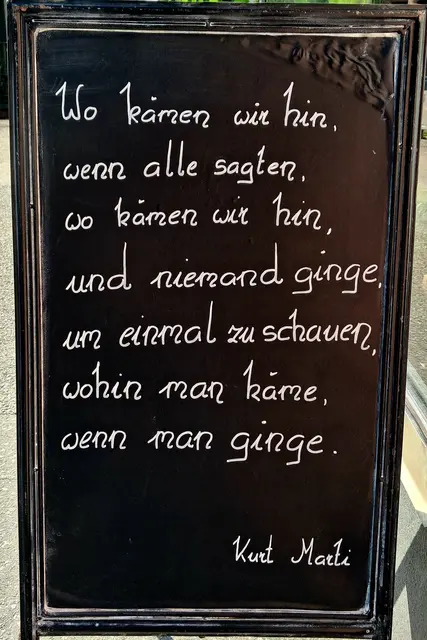 Wo kämen wir hin,
wenn alle sagten,
wo kämen wir hin,
und niemand ginge,
um einmal zu schauen,
wohin man käme,
wenn man ginge.
Kurt Marti